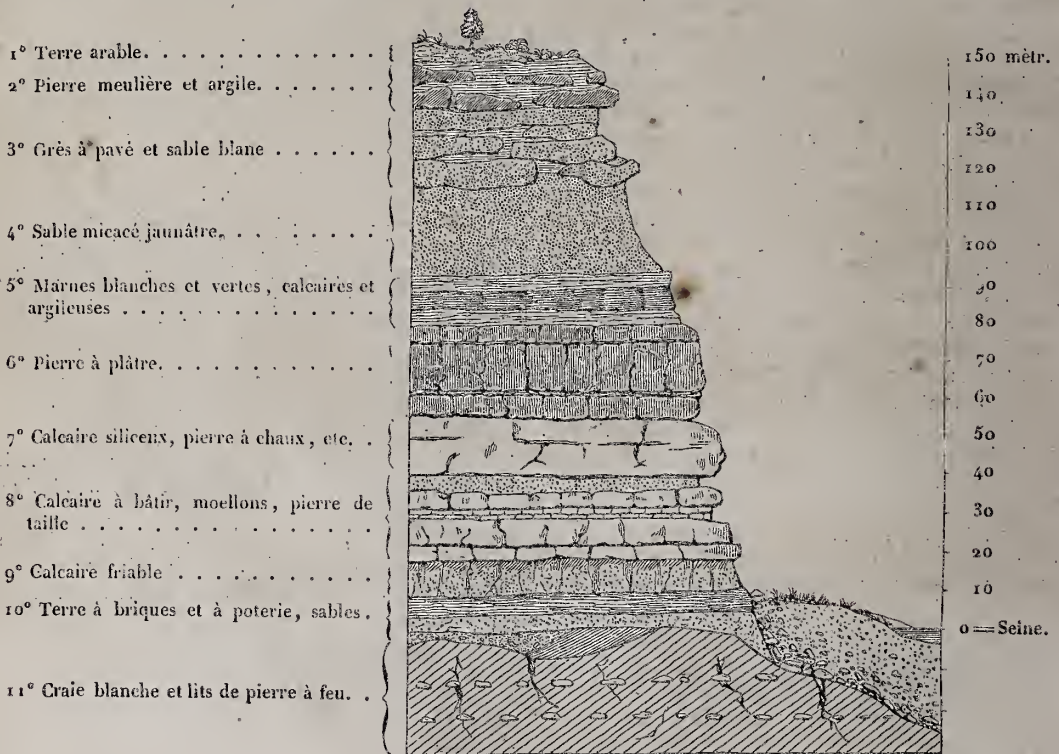 1° Terre arable. . . . . . . . . . . . .
2° Pierre meulière et argile. . . . . . .
3° Grès à pavé et sable blanc . . . . . .
4° Sable micacé jaunâtre. . . . . . . .
5° Marnes blanches et vertes, calcaires et
argileuses . . . . . . . . . . . . . .
6° Pierre à plâtre. . . . . . . . . . . .
7° Calcaire siliceux, pierre à chaux, etc. .
8° Calcaire à bâtir, moellons, pierre de
taille . . . . . . . . . . . . . . . .
9° Calcaire friable . . . . . . . . . . .
10° Terre à briques et à poterie, sables.
11° Craie blanche et lits de pierre à feu. .
150 mètr.
140
130
120
110
100
90
80
70
60
50
40
30
20
10
0 = Seine.